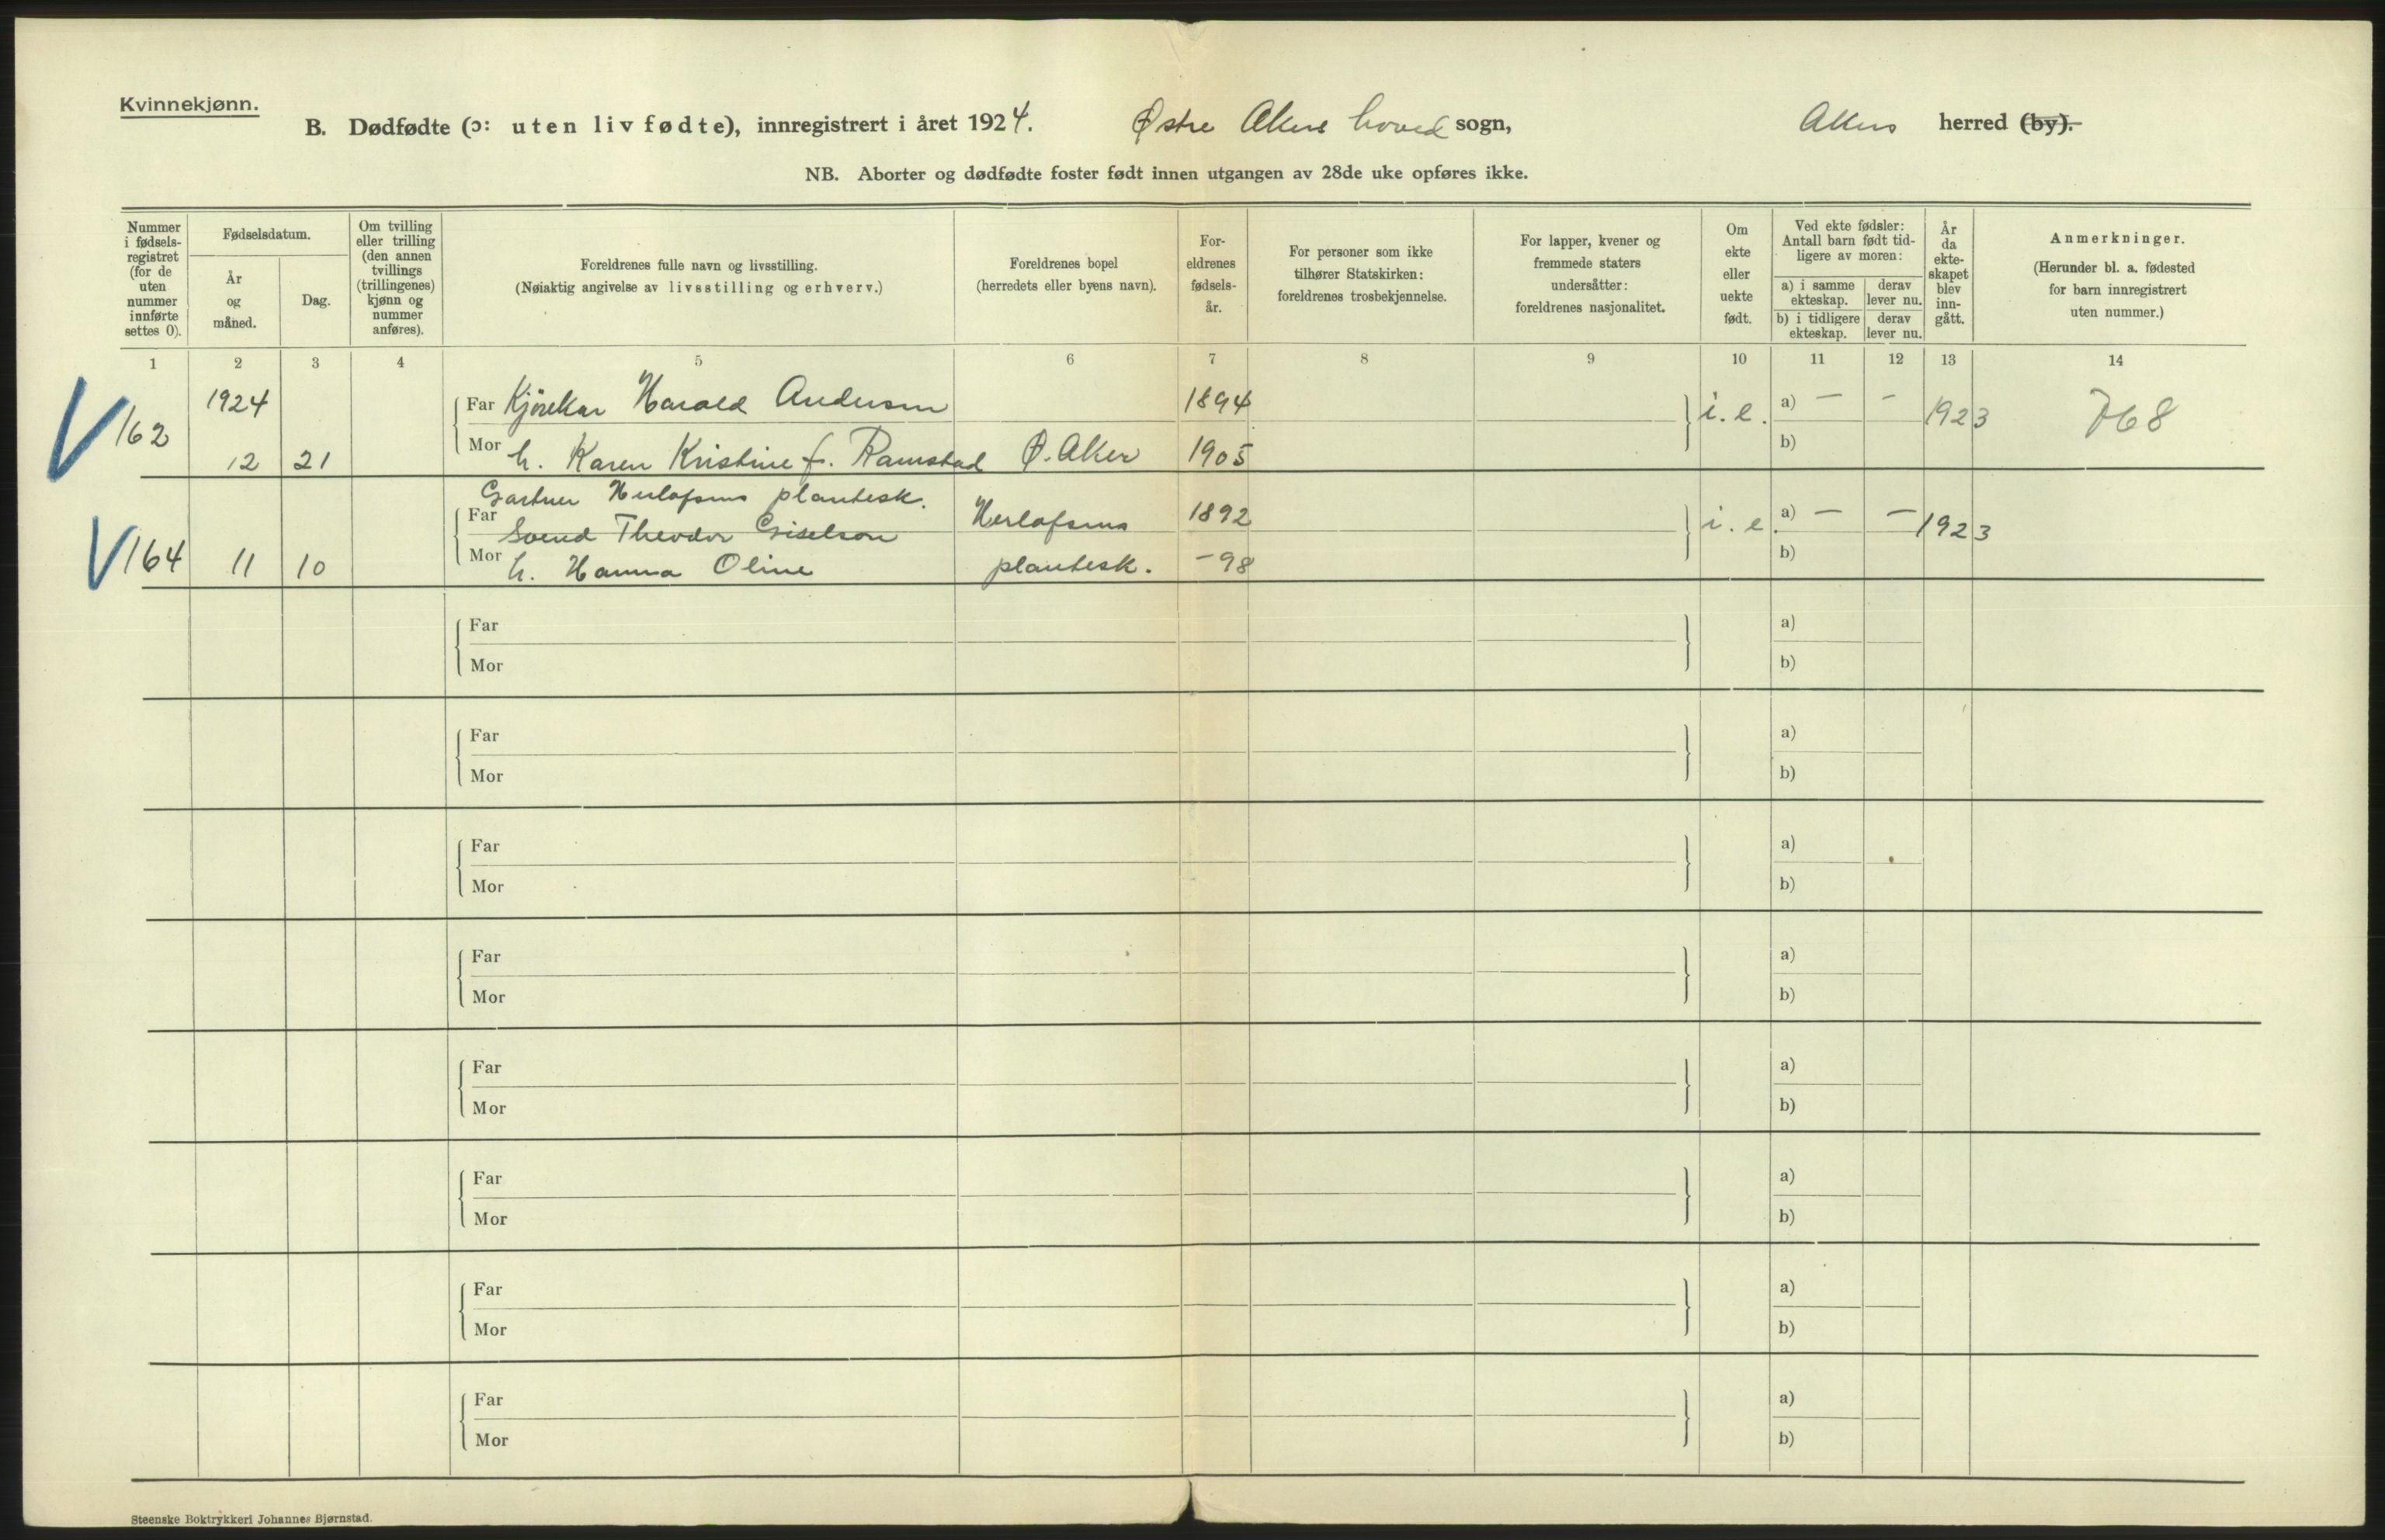 Kvinnekjønn.
B. Dødfødte (ɔ: uten liv fødte), innregistrert i året 1924. Østre Akers hoved sogn, Akers herred (by).
NB. Aborter og dødfødte foster født innen utgangen av 28de uke opføres ikke.
Nummer
i fødsels-
registret
(for de
uten
nummer
innførte
settes 0).
Fødselsdatum.
År
og
måned.
Dag.
Om tvilling
eller trilling
(den annen
tvillings
(trillingenes)
kjønn og
nummer
anføres).
Foreldrenes fulle navn og livsstilling.
(Nøiaktig angivelse av livsstilling og erhverv.)
Foreldrenes bopel
(herredets eller byens navn).
For-
eldrenes
fødsels-
år.
For personer som ikke
tilhører Statskirken:
foreldrenes trosbekjennelse.
For lapper, kvener og
fremmede staters
undersåtter:
foreldrenes nasjonalitet.
Om
ekte
eller
uekte
født.
Ved ekte fødsler:
Antall barn født tid-
ligere av moren:
a) i samme
ekteskap.
derav
lever nu.
b) i tidligere
ekteskap.
derav
lever nu.
År
da
ekte-
skapet
blev
inn-
gått.
Anmerkninger.
(Herunder bl. a. fødested
for barn innregistrert
uten nummer.)
1 2 3 4 5 6 7 8 9 10 11 12 13 14
1924 Far Kjørekar Harald Andersen 1894 i. e. a) — - 1923 768
162 12 21 Mor h. Karen Kristine f. Ramstad Ø. Aker 1905 b)
Gartner Herlofsens plantesk.
Far Svend Theodor Giselson Herlofsens 1892 i. e. a) — — 1923
164 11 10 Mor h. Hanna Oline plantesk. -98 b)
Far a)
Mor b)
Far a)
Mor b)
Far a)
Mor b)
Far a)
Mor b)
Far a)
Mor b)
Far a)
Mor b)
Far a)
Mor b)
Far a)
Mor b)
Steenske Boktrykkeri Johannes Bjørnstad.